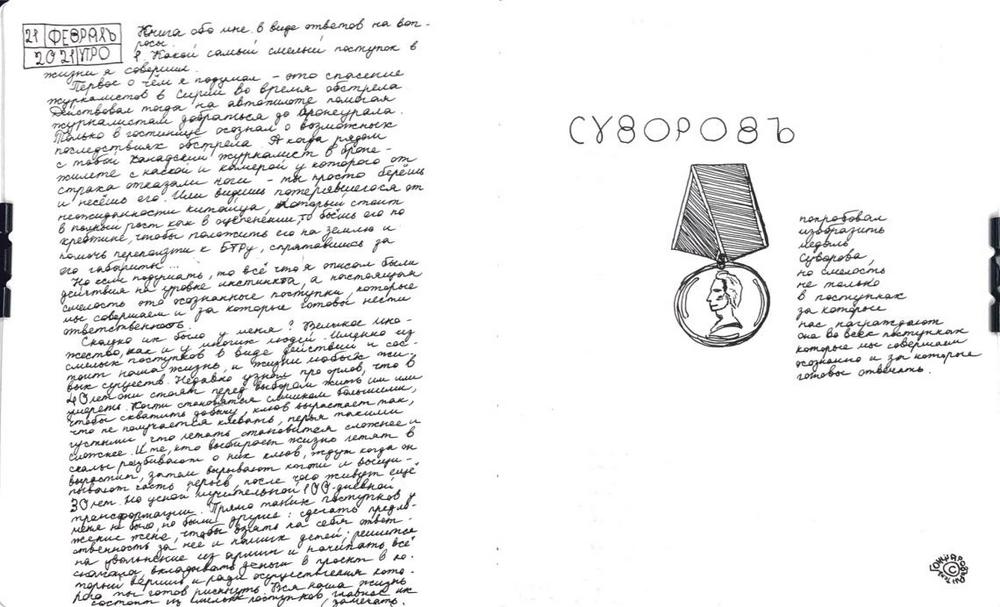 21 ФЕВРАЛЬ
2021 УТРО
Книга обо мне в виде ответов на воп-
росы.
1. Какой самый смелый поступок в
жизни я совершил.
Первое о чём я подумал - это спасение
журналистов в Сирии во время обстрела
Действовал тогда на автопилоте помогая
журналистам добраться до бронеурала.
Только в гостинице осознал о возможных
последствиях обстрела. А когда рядом
с тобой канадский журналист в броне-
жилете с каской и камерой у которого от
страха отказали ноги - ты просто берёшь
и несёшь его. Или видишь потерявшегося от
неожиданности китайца, который стоит
в полный рост как в оцепенении, то бьёшь его по
хребтине, чтобы положить его на землю и
помочь переползти к БТРу, спрятавшись за
его габариты...
Но если подумать, то всё что я описал были
действия на уровне инстинкта, а настоящая
смелость это осознанные поступки, которые
мы совершаем и за которые готовы нести
ответственность.
Сколько их было у меня? Великое мно-
жество, как и у многих людей. Именно из
смелых поступков в виде действий и сос-
тоит наша жизнь, и жизни любых жи-
вых существ. Недавно узнал про орлов, что в
40 лет они стоят перед выбором жить им или
умереть. Когти становятся слишком большими,
чтобы схватить добычу, клюв вырастает так,
что не получается клевать, перья такими
густыми, что летать становится сложнее и
сложнее. И те, кто выбирает жизнь летят в
скалы разбивают о них клюв, ждут когда он
вырастит, затем вырывают когти и выщи-
пывают часть перьев, после чего живут ещё
30 лет. Но ценой мучительной 100 дневной
трансформации. Прямо таких поступков у
меня не было, но были другие: сделать предло-
жение жене, чтобы взять на себя ответ-
ственность за неё и наших детей; решится
на увольнение из армии и начинать всё
сначала, вкладывать деньги в проект в ко-
торый веришь и ради осуществления кото-
рого ты готов рискнуть. Вся наша жизнь
состоит из смелых поступков, главное их
замечать.
СУВОРОВЪ
попробовал
изобразить
медаль
Суворова,
но смелость
не только
в поступках
за которые
нас награждают
она во всех поступках
которые мы совершаем
осознанно и за которые
готовы отвечать.